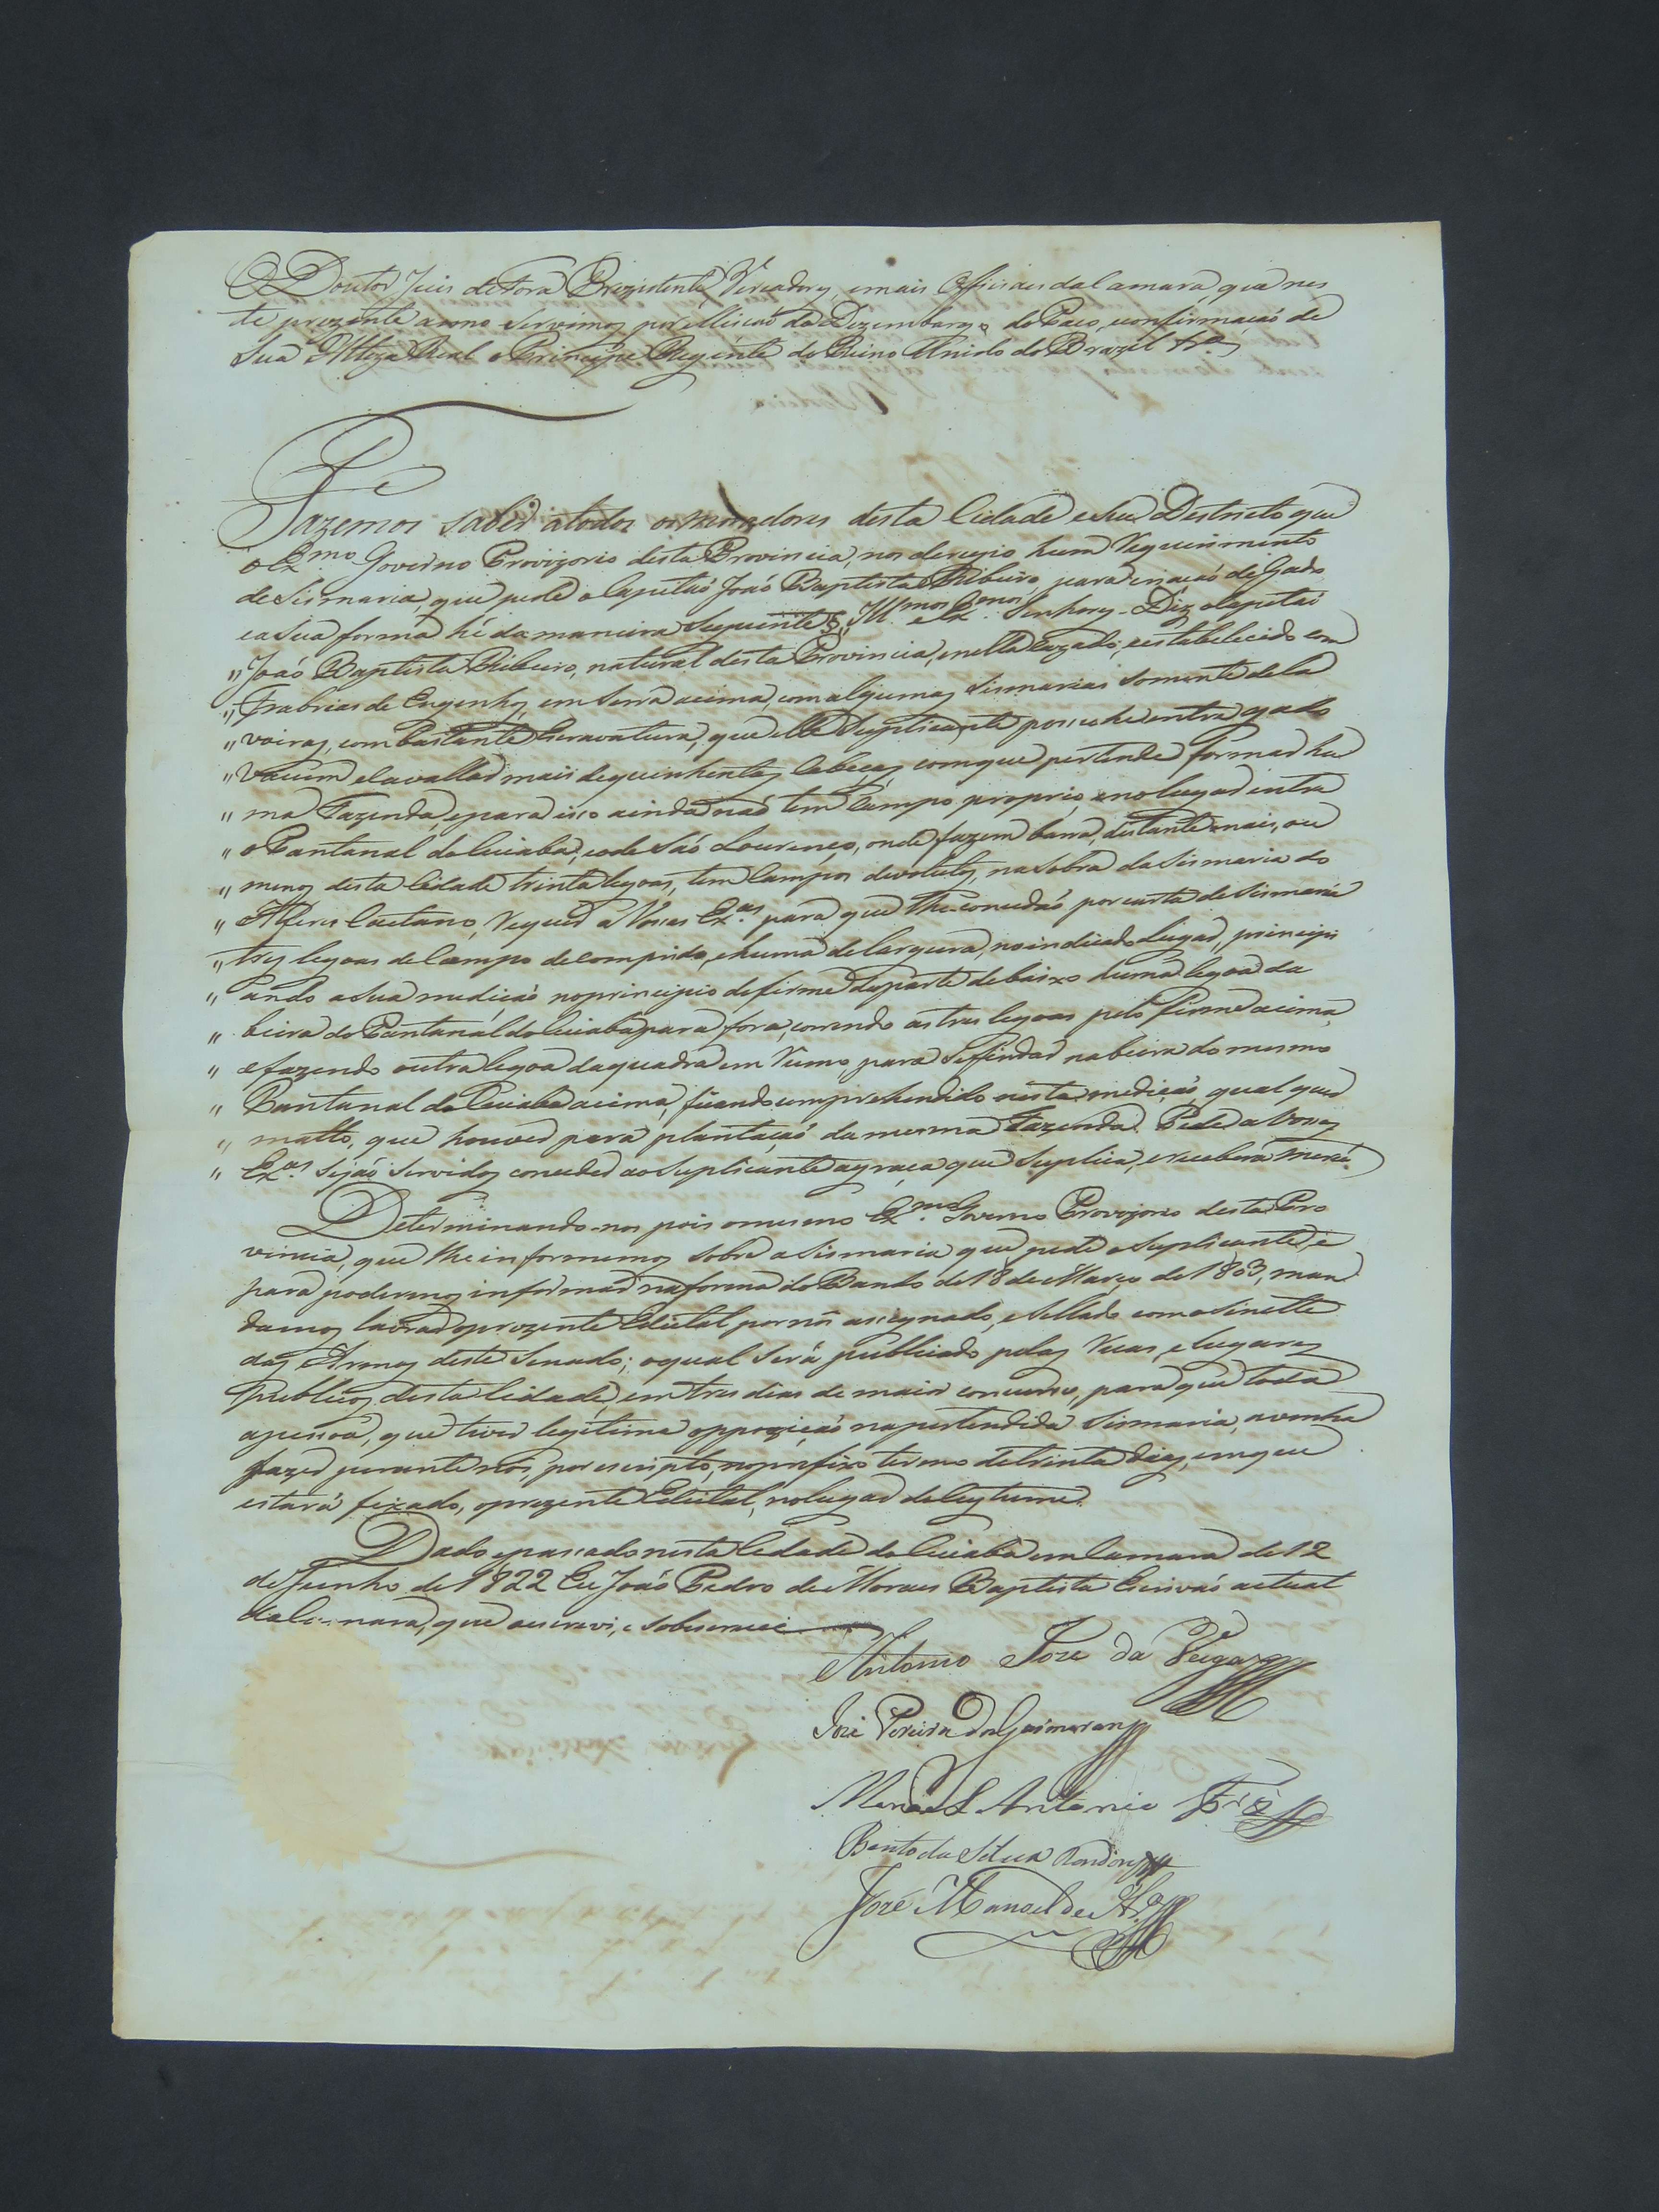 O Doutor Juis de Fora Prezidente, Vereadores, e mais Officiaes da Camara que nes
te prezente anno servimos por elleicaõ do Dezembargo do Paco, e confirmaçaõ de
Sua Alteza Real o Principe Regente do Reino Unido do Brazil &ª
Fazemos saber atodos os moradores desta Cidade e seu Destricto que
o Exmo Governo Provizorio desta Provincia, nos derigio hum Requerimento
de Sismaria, que pede o Capitaõ Joaõ Baptista Ribeiro, para criaçaõ de Gado
ea Sua forma hé da maneira Seguinte Illmos e Exmos Senhores - Diz o Capitaõ
" Joaõ Baptista Ribeiro, natural desta Provincia, e nella cazado, e establecido com
" Frabricas de Engenho, em Serra acima, com algumas Sismarias Somente de la
" voiras, com bastante Escravatura, que elle Suplicante possuhe entre gado
" Vacum e Cavallar mais de quinhentas Cabeças, com que pertende formar hu
" ma Fazenda, e para isso ainda naõ tem Campo proprio, e no lugar entre
" o Pantanal do Cuiabá, e o de Saõ Lourenço, onde fazem barra, distante mais, ou
" menos desta Cidade trinta legoas, tem Campos devolutos, na sobra da Sismaria do
" Alferes Caetano, Requer a Vossas Exas para que lhe concedaõ por carta de Sismaria
" tres legoas de Campo de comprido, e huma de largura, no indicado Lugar, princípi
" ando a Sua mediçaõ no principio do firme da parte debaixo huma legoa da
" beira do Pantanal do Cuiabá para fora, correndo as tres legoas pelo firme acima,
" e fazendo outra legoa da quadra em Rumo, para Se findar na beira do mesmo
" Pantanal do Cuiabá acima, ficando comprehendido nesta mediçaõ, qual quer
" matto, que houver para plantaçaõ da mesma Fazenda. Pede a Vossas
" Exas Sejaõ Servidos conceder ao Suplicante a graça que Suplica, e receberá Mercê.
Determinando-nos pois o mesmo Exmo Governo Provizorio desta Pro
vincia, que lhe informemos sobre a Sismaria que pede o Suplicante, e
para podermos informar na forma do Bando de 18 de Março de 1803, man
damos lavrar o prezente Edictal por nós assignado, e Sellado com o Sinette
das Armas deste Senado; o qual Será publicado pelas Ruas, e lugares
publicos desta Cidade, em tres dias de maior concurso, para que toda
a pessoa, que tiver legitima oppoziçaõ na pertendida Sismaria, a venha
fazer perante nós, por escripto, no prefixo termo de trinta dias, em que
estará fixado, o prezente Edictal, no lugar do Custume.
Dado e passado nesta Cidade do Cuiabá em Camara de 12
de Junho de 1822 Eu Joaõ Pedro de Moraes Baptista Escrivaõ actual
da Camara, que o escrevi, e sobscrevi
Antonio Joze da Veiga
José Pereira dos Guimaraens
Manoel Antonio
Bento da Silva Rondon
José Manoel de